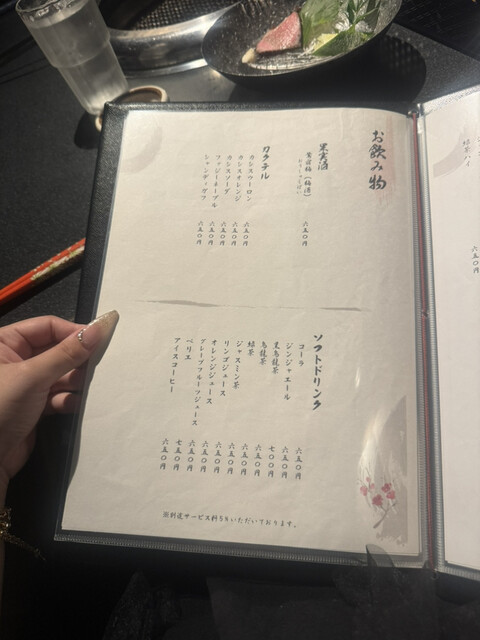 お飲み物
果実酒
鶯宿梅（梅酒） 六五〇円
おうしゅくばい
カクテル
カシスウーロン 六五〇円
カシスオレンジ 六五〇円
カシスソーダ 六五〇円
ファジーネーブル 六五〇円
シャンディガフ 六五〇円
ソフトドリンク
コーラ 六五〇円
ジンジャエール 六五〇円
黒烏龍茶 七〇〇円
烏龍茶 六五〇円
緑茶 六五〇円
ジャスミン茶 六五〇円
リンゴジュース 六五〇円
オレンジジュース 六五〇円
グレープフルーツジュース 六五〇円
ペリエ 七五〇円
アイスコーヒー 六五〇円
※別途サービス料5%いただいております。
緑茶ハイ
六五〇円